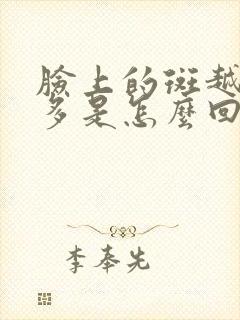 臉上的斑越
多是怎麼回
李奉先